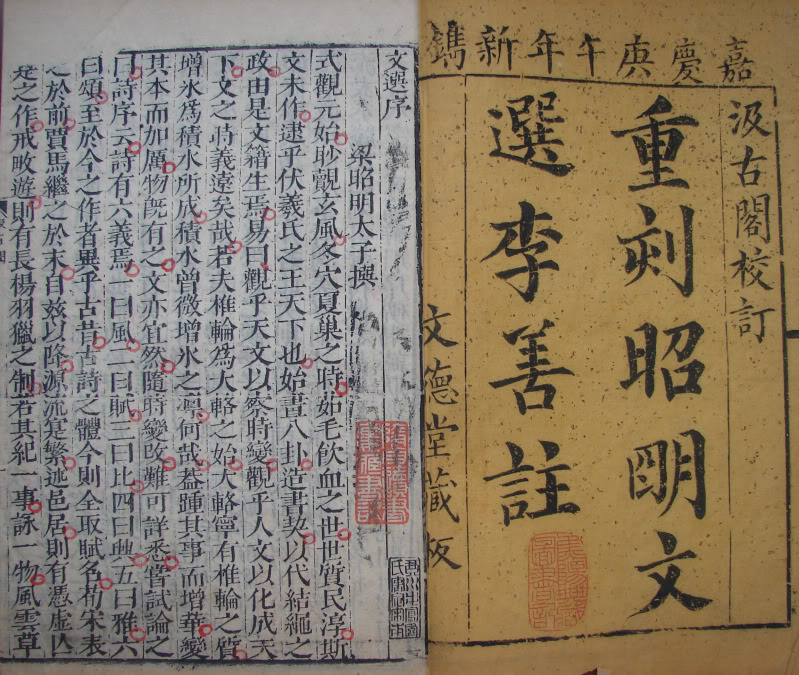 嘉慶庚午年新鐫
汲古閣校訂
重刻昭明文
選李善註
文德堂藏板
文選序
梁昭明太子撰
式觀元始眇覿玄風冬穴夏巢之時茹毛飲血之世世質民淳斯
文未作逮乎伏羲氏之王天下也始畫八卦造書契以代結繩之
政由是文籍生焉易曰觀乎天文以察時變觀乎人文以化成天
下文之時義遠矣哉若夫椎輪爲大輅之始大輅寧有椎輪之質
增氷爲積水所成積水曾微增氷之凛何哉葢踵其事而增華變
其本而加厲物旣有之文亦宜然隨時變改難可詳悉嘗試論之
曰詩序云詩有六義焉一曰風二曰賦三曰比四曰興五曰雅六
曰頌至於今之作者異乎古昔古詩之體今則全取賦名荀宋表
之於前賈馬繼之於末自茲以降源流寔繁述邑居則有憑虛亾
是之作戒畋遊則有長楊羽獵之制若其紀一事詠一物風雲草